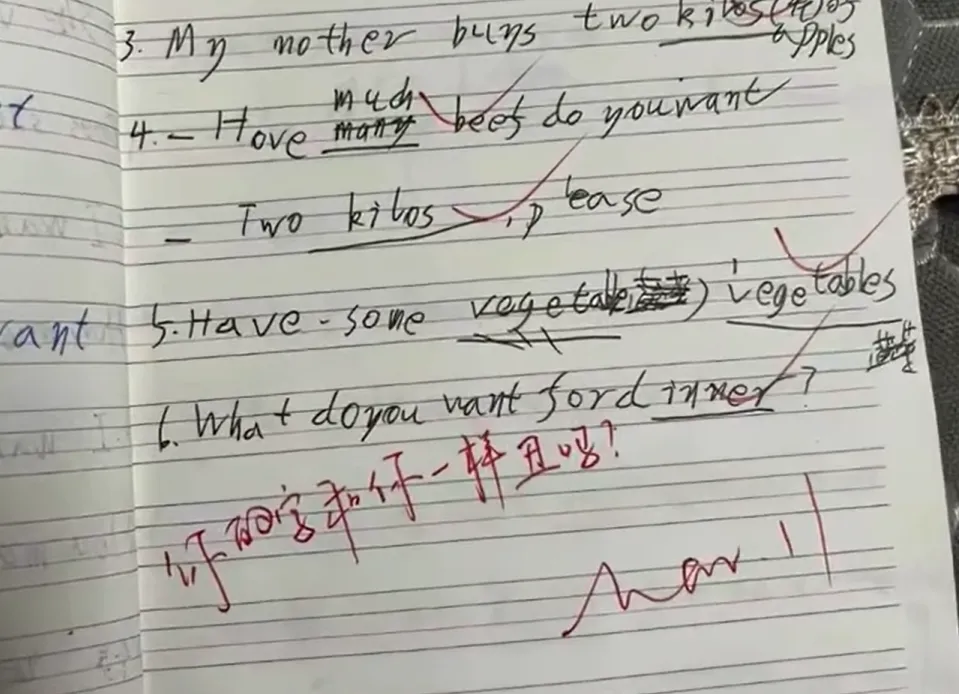 3. My mother buys two kilos of
apples
much
4. - How many beef do you want
- Two kilos, please
5. Have some vegetable vegetables
6. What do you want for dinner?
你的字和你一样丑吗?
Nov. 11